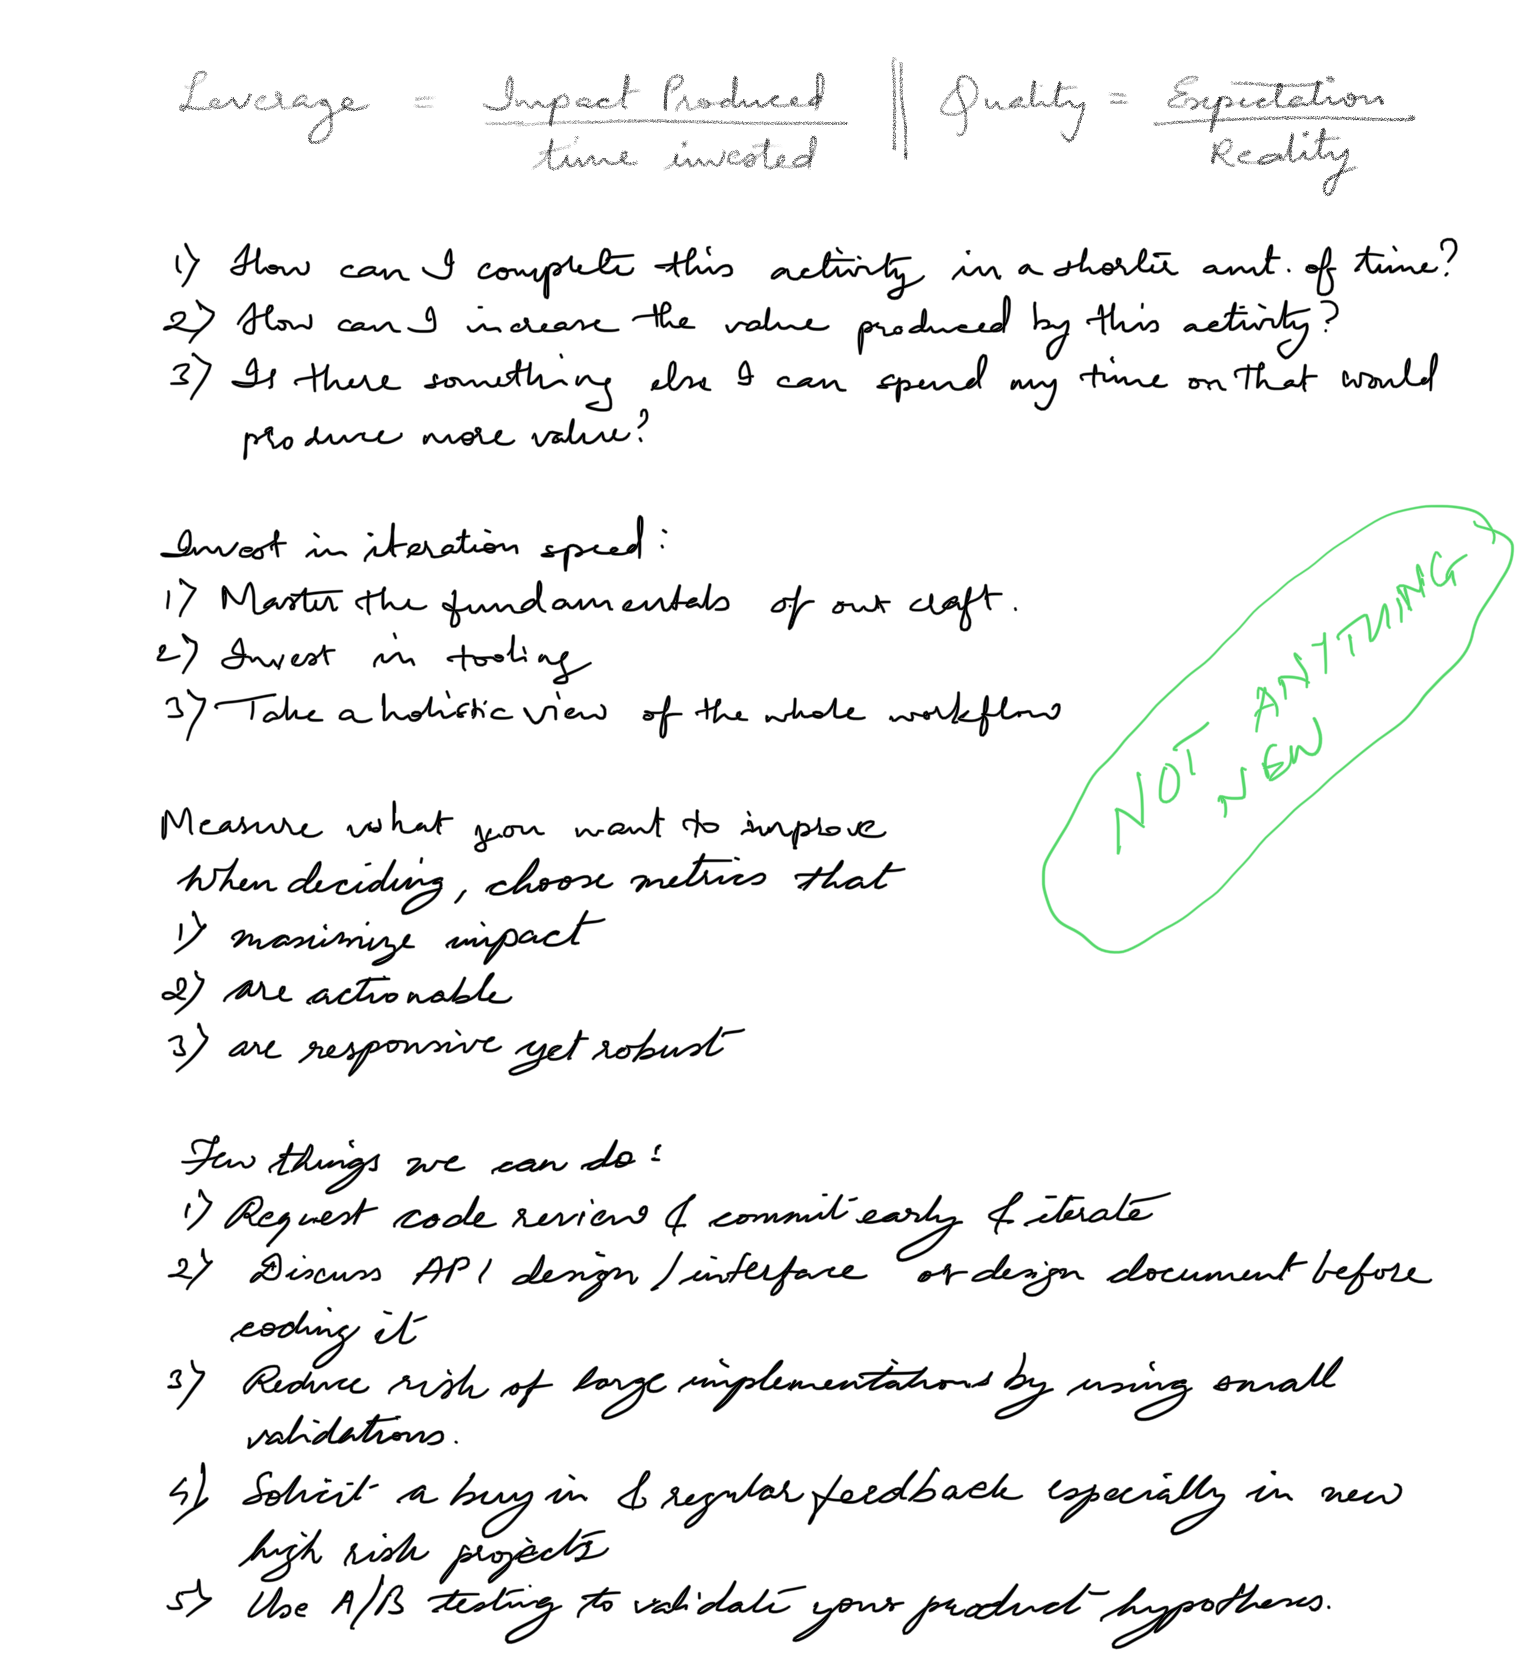 Leverage = Impact Produced / time invested || Quality = Expectation / Reality
1) How can I complete this activity in a shorter amt. of time?
2) How can I increase the value produced by this activity?
3) Is there something else I can spend my time on that would
produce more value?
Invest in iteration speed:
1) Master the fundamentals of our craft.
2) Invest in tooling
3) Take a holistic view of the whole workflow
NOT ANYTHING
NEW
Measure what you want to improve
When deciding, choose metrics that
1) maximize impact
2) are actionable
3) are responsive yet robust
Few things we can do:
1) Request code review & commit early & iterate
2) Discuss API design / interface or design document before
coding it
3) Reduce risk of large implementations by using small
validations.
4) Solicit a buy in & regular feedback especially in new
high risk projects
5) Use A/B testing to validate your product hypotheses.